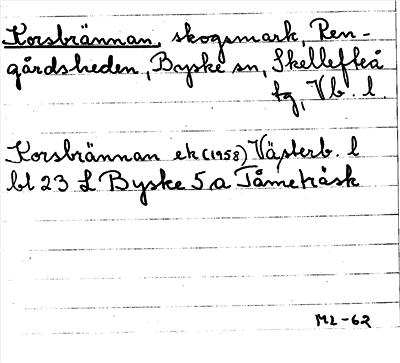 Korsbrännan, skogsmark, Ren-
gårdsheden, Byske sn, Skellefteå
tg, Vb. l.
Korsbrännan ek (1958) Västerb. l
bl 23 L Byske 5 a Tåmeträsk
ML-62